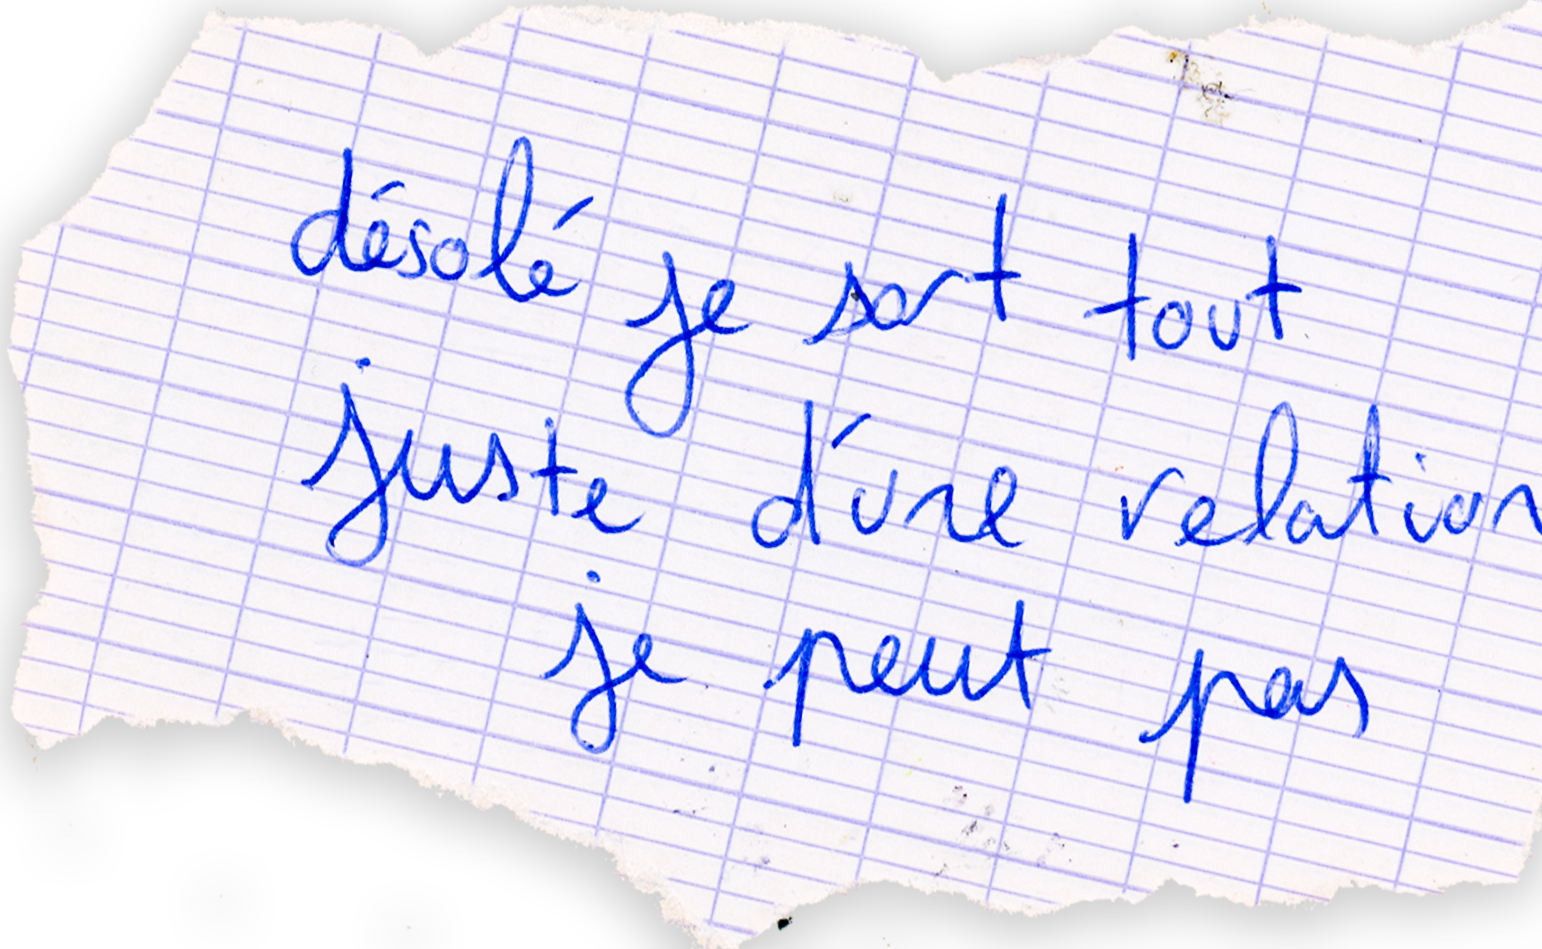 désolé je sort tout
juste d'une relation
je peut pas